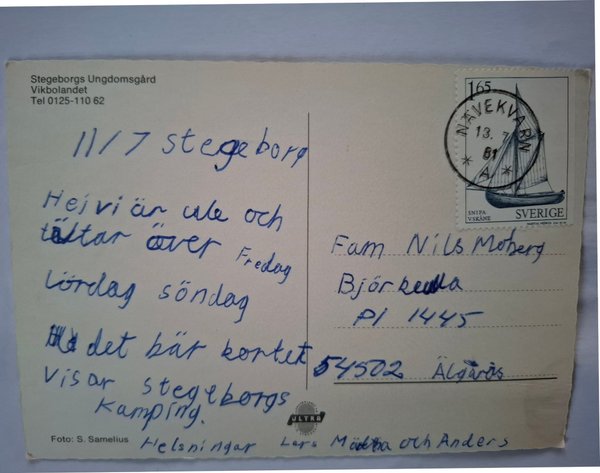 Stegeborgs Ungdomsgård
Vikbolandet
Tel 0125-110 62
11/7 stegeborg
Hej vi är ute och
tältar över Fredag
Lördag söndag
det här kortet
visar stegeborgs
Kamping.
Foto: S. Samelius
ULTRA
Helsningar Lars och Anders
165
SNIPA
V SKÅNE
SVERIGE
NÄVEKVARN
13. 7
81
* A *
Fam Nils Moberg
Björkulla
Pl 1445
54502 Älgarås